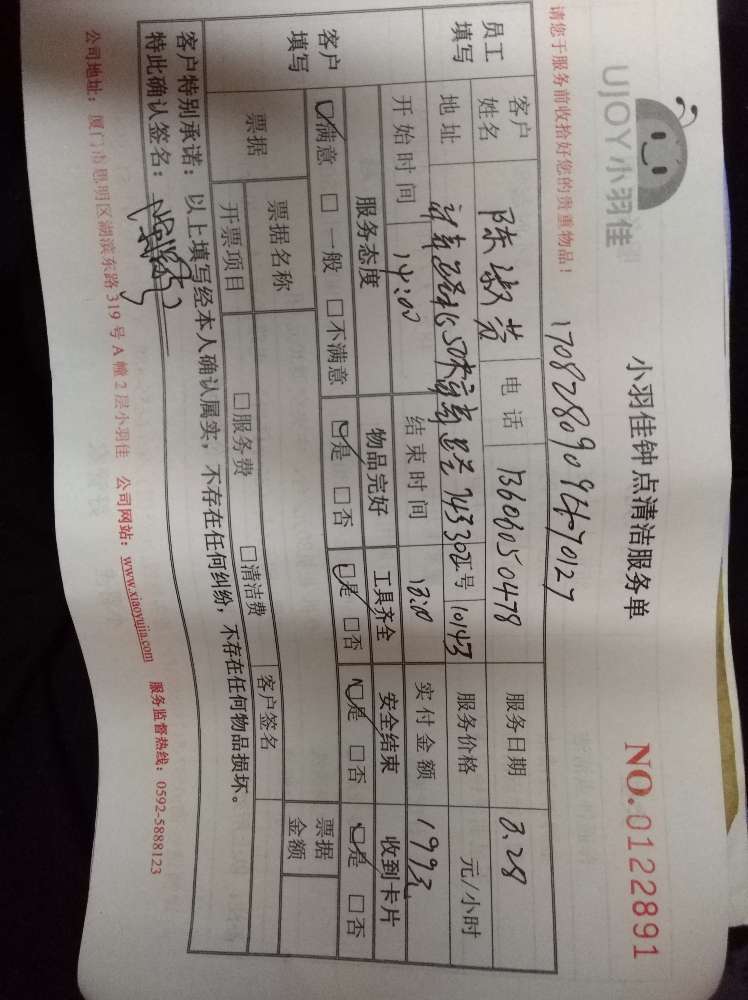 UJOY小羽佳
小羽佳钟点清洁服务单
NO.0122891
请您于服务前收拾好您的贵重物品！
17082809094470127
员工填写
客户姓名 陈淑芳 电话 13606050478 服务日期 8.28
地址 工号 10143 服务价格 元/小时
开始时间 14:00 结束时间 18:00 实付金额 199元
客户填写
服务态度 物品完好 工具齐全 安全结束 收到卡片
☑满意 □一般 □不满意 ☑是 □否 ☑是 □否 ☑是 □否 ☑是 □否
票据 票据名称 客户签名 票据金额
开票项目 □服务费 □清洁费
客户特别承诺：以上填写经本人确认属实，不存在任何纠纷，不存在任何物品损坏。
特此确认签名：
公司地址：厦门市思明区湖滨东路319号A幢2层小羽佳 公司网站：www.xiaoyujia.com 服务监督热线：0592-5888123